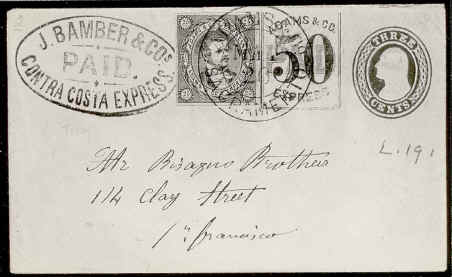 J. BAMBER & CO'S
PAID.
CONTRA COSTA EXPRESS.
ADAMS & CO.
50
EXPRESS
THREE
CENTS
L.191
Mr Bisagno Brothers
114 Clay Street
Sn. Francisco